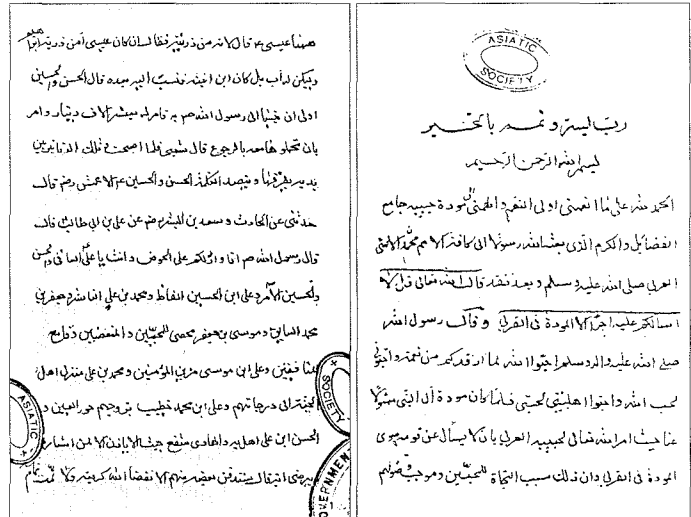 ASIATIC SOCIETY
رب يسر وتمم بالخير
بسم الله الرحمن الرحيم
الحمد لله على ما انعمنى اولى النعم والهمنى الى مودة حبيبه جامع
الفضايل والكرم الذى بعثه الله رسولا الى كافة الامم محمد الامى
العربى صلى الله عليه وسلم وبعد فقد قال الله تعالى قل لا
اسالكم عليه اجرا الا المودة فى القربى وقال رسول الله
صلى الله عليه واله وسلم احبوا الله لما ارفدكم من نعمة واحبونى
لحب الله واحبوا اهل بيتى لحبى فلما كان مودة آل النبى مسئولا
عنا حيث امر الله تعالى لحبيبه العربى بان لا يسأل عن قومه سوى
المودة فى القربى وان ذلك سبب النجاة للمحبين وموجب
ههنا عيسى قال لانه من ذريته فقال ان كان عيسى من ذرية ابراهيم
ولم يكن له اب بل كان ابن ابنته فنسب اليه مع بعده قال الحسن والحسين
اولى ان ينسبا الى رسول الله صم فامر له بعشرة الاف دينار وامر
بان يحملوها معه بالرجوع قال شعبى فلما اصبحت وذلك الدنانير بين
يديه يفرقها ويتصدق الحسن والحسين الاعمش رضى قال
حدثنى عن الحارث وسعد بن عن على بن ابى طالب قال
قال رسول الله صم انا واردكم على الحوض وانت يا على الساقى والحسن
والحسين الآمر وعلى ابن الحسين الفارط ومحمد بن على الناشر وجعفر بن
محمد السابق وموسى بن جعفر محصى المحبين والمبغضين وقامع
المنافقين وعلى ابن موسى مزين المؤمنين ومحمد بن على منزل اهل
الجنة الى درجاتهم وعلى ابن محمد خطيب يزوجهم حور العين و
الحسن ابن على والهادى حيث لا ياذن الا لمن يشاء
ويرضى
ASIATIC SOCIETY
ASIATIC
GOVERNMENT